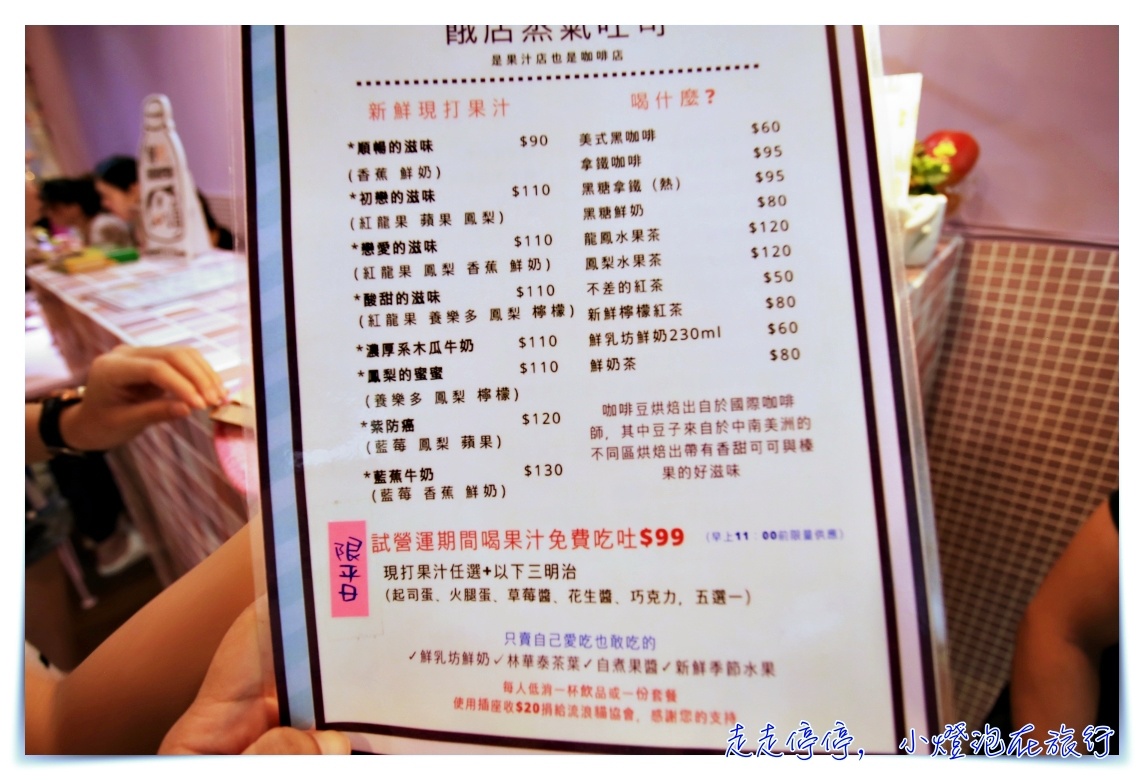 餓店蒸氣吐司
是果汁店也是咖啡店
新鮮現打果汁
*順暢的滋味 $90
(香蕉 鮮奶)
*初戀的滋味 $110
(紅龍果 蘋果 鳳梨)
*戀愛的滋味 $110
(紅龍果 鳳梨 香蕉 鮮奶)
*酸甜的滋味 $110
(紅龍果 養樂多 鳳梨 檸檬)
*濃厚系木瓜牛奶 $110
*鳳梨的蜜蜜 $110
(養樂多 鳳梨 檸檬)
*紫防癌 $120
(藍莓 鳳梨 蘋果)
*藍蕉牛奶 $130
(藍莓 香蕉 鮮奶)
喝什麼?
美式黑咖啡 $60
拿鐵咖啡 $95
黑糖拿鐵(熱) $95
黑糖鮮奶 $80
龍鳳水果茶 $120
鳳梨水果茶 $120
不差的紅茶 $50
新鮮檸檬紅茶 $80
鮮乳坊鮮奶230ml $60
鮮奶茶 $80
咖啡豆烘焙出自於國際咖啡
師,其中豆子來自於中南美洲的
不同區烘焙出帶有香甜可可與榛
果的好滋味
限平日
試營運期間喝果汁免費吃吐$99 (早上11:00前限量供應)
現打果汁任選+以下三明治
(起司蛋、火腿蛋、草莓醬、花生醬、巧克力,五選一)
只賣自己愛吃也敢吃的
✓鮮乳坊鮮奶✓林華泰茶葉✓自煮果醬✓新鮮季節水果
每人低消一杯飲品或一份套餐
使用插座收$20捐給流浪貓協會,感謝您的支持
走走停停,小燈泡在旅行